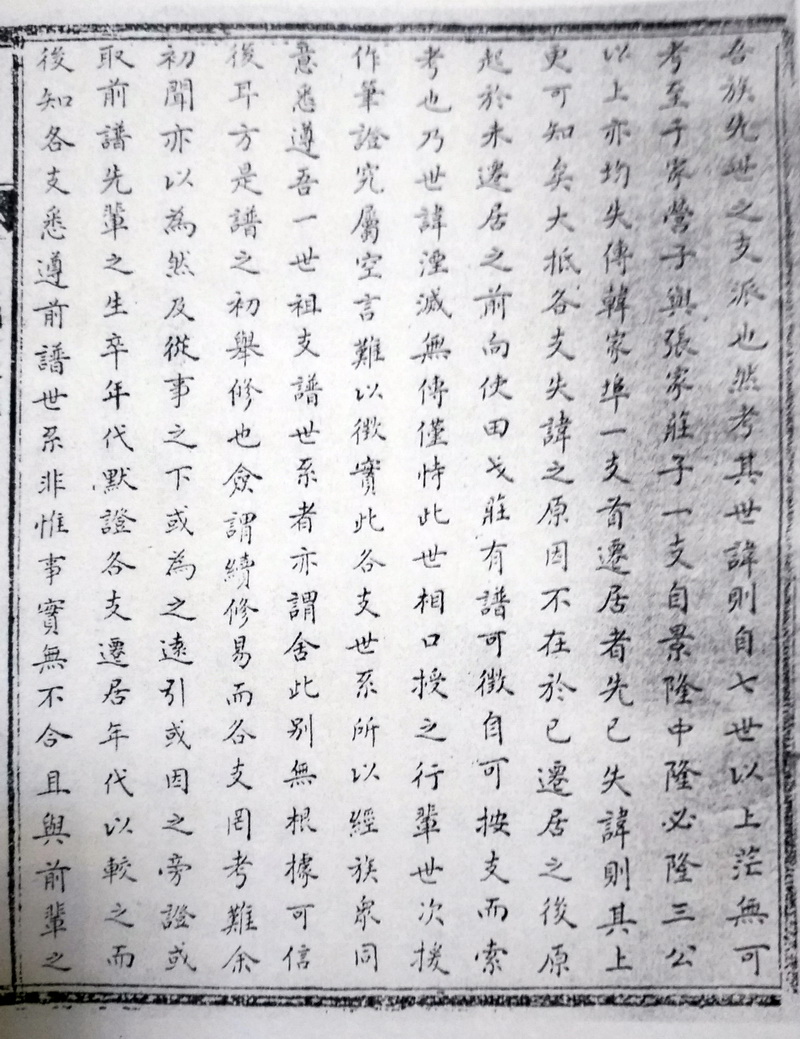 吾族先世之支派也然考其世諱則自七世以上茫無可
考至于家營子與張家莊子一支自景隆中隆必隆三公
以上亦均失傳韓家埠一支首遷居者先已失諱則其上
更可知矣大抵各支失諱之原因不在於已遷居之後原
起於未遷居之前向使田戈莊有譜可徵自可按支而索
考也乃世諱湮滅無傳僅恃此世相口授之行輩世次援
作筆證究屬空言難以徵實此各支世系所以經族衆同
意悉遵吾一世祖支譜世系者亦謂舍此别無根據可信
後耳方是譜之初舉修也僉謂續修易而各支罔考難余
初聞亦以為然及從事之下或為之遠引或因之旁證或
取前譜先輩之生卒年代默證各支遷居年代以較之而
後知各支悉遵前譜世系非惟事實無不合且與前輩之